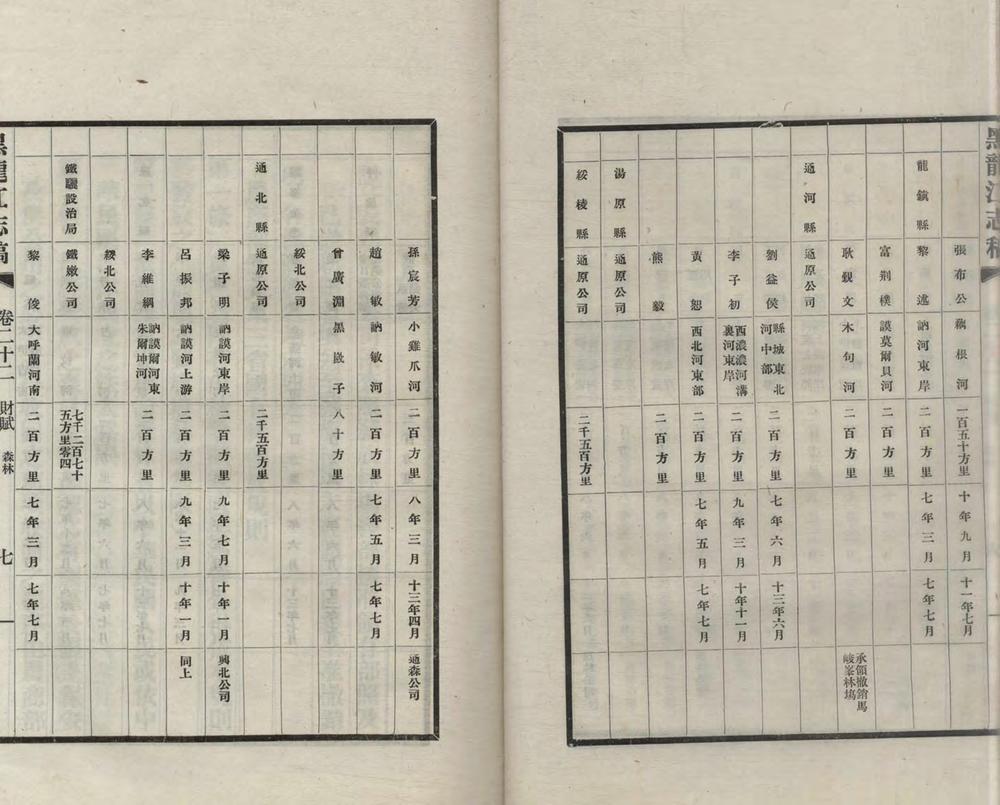 黑龍江志稿
張布公 藕根河 一百五十方里 十年九月 十一年七月
龍鎮縣 黎逑 訥河東岸 二百方里 七年三月 七年七月
富荆樸 謨莫爾貝河
耿覲文 木句河 二百方里 承領撤銷馬峻峯林塲
通河縣 通原公司
劉益侯 縣城東北河中部 二百方里 七年六月 十三年六月
李子初 西浪浪河溝裏河東岸 二百方里 九年三月 十年十一月
黃恕 西北河東部 二百方里 七年五月 七年七月
熊毅 二百方里
湯原縣 通原公司
綏棱縣 通原公司 二千五百方里
孫宸芳 小雞爪河 二百方里 八年三月 十三年四月 通森公司
趙敏 訥敏河 二百方里 七年五月 七年七月
曾廣淵 黑嶔子 八十方里
綏北公司
通北縣 通原公司 二千五百方里
梁子明 訥謨河東岸 二百方里 九年七月 十年一月 興北公司
呂振邦 訥謨河上游 二百方里 九年三月 十年一月 同上
李維綱 訥謨爾河東朱爾坤河 二百方里
綏北公司
鐵驪設治局 鐵嫩公司 七千二百七十五方里零四
黎俊 大呼蘭河南 二百方里 七年三月 七年七月
黑龍江志稿 卷二十二 財賦 森林 七